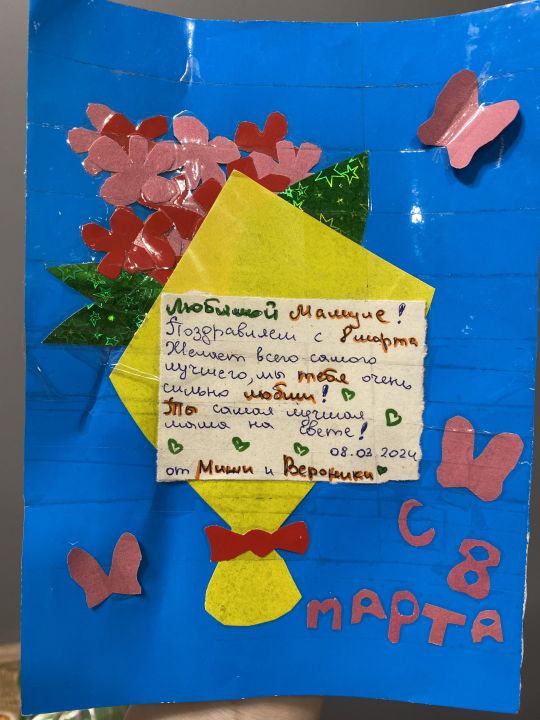 Любимой Мамуле!
Поздравляем с 8 марта
Желаем всего самого
лучшего, мы тебя очень
сильно любим!
Ты самая лучшая
мама на свете!
08.03.2024
от Миши и Вероники
С
8
МАРТА